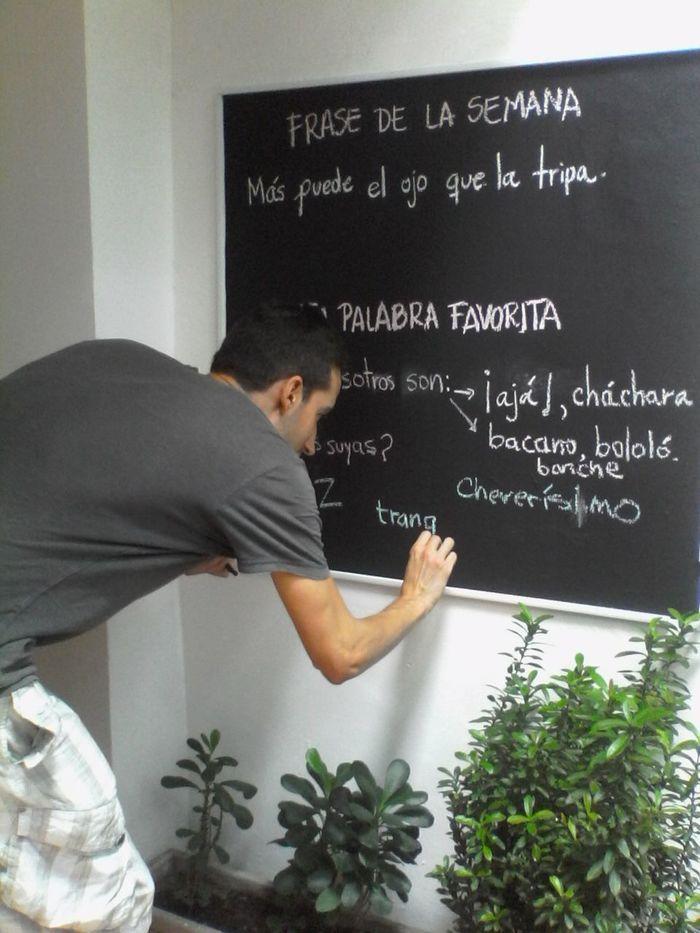 FRASE DE LA SEMANA
Más puede el ojo que la tripa.
PALABRA FAVORITA
sotros son: → ¡ajá!, cháchara
bacano, bololó.
s suyas?
bonche
Z
Cheverísimo
tranq